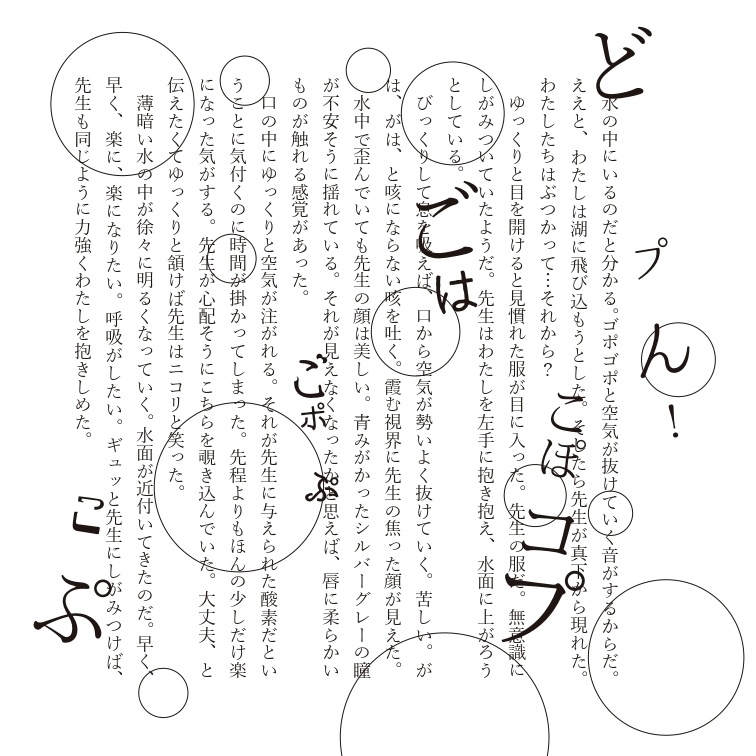 ど
プ
ん
！
水の中にいるのだと分かる。ゴポゴポと空気が抜けていく音がするからだ。
ええと、わたしは湖に飛び込もうとした。そしたら先生が真下から現れた。
わたしたちはぶつかって…それから？
ゆっくりと目を開けると見慣れた服が目に入った。先生の服だ。無意識に
しがみついていたようだ。先生はわたしを左手に抱き抱え、水面に上がろう
としている。
こぽ
コプ
びっくりして息を吸えば、口から空気が勢いよく抜けていく。苦しい。が
は、がは、と咳にならない咳を吐く。霞む視界に先生の焦った顔が見えた。
ごは
水中で歪んでいても先生の顔は美しい。青みがかったシルバーグレーの瞳
が不安そうに揺れている。それが見えなくなったかと思えば、唇に柔らかい
ものが触れる感覚があった。
ごポ
ぷ
口の中にゆっくりと空気が注がれる。それが先生に与えられた酸素だとい
うことに気付くのに時間が掛かってしまった。先程よりもほんの少しだけ楽
になった気がする。先生が心配そうにこちらを覗き込んでいた。大丈夫、と
伝えたくてゆっくりと頷けば先生はニコリと笑った。
薄暗い水の中が徐々に明るくなっていく。水面が近付いてきたのだ。早く、
早く、楽に、楽になりたい。呼吸がしたい。ギュッと先生にしがみつけば、
先生も同じように力強くわたしを抱きしめた。
こ
ぷ